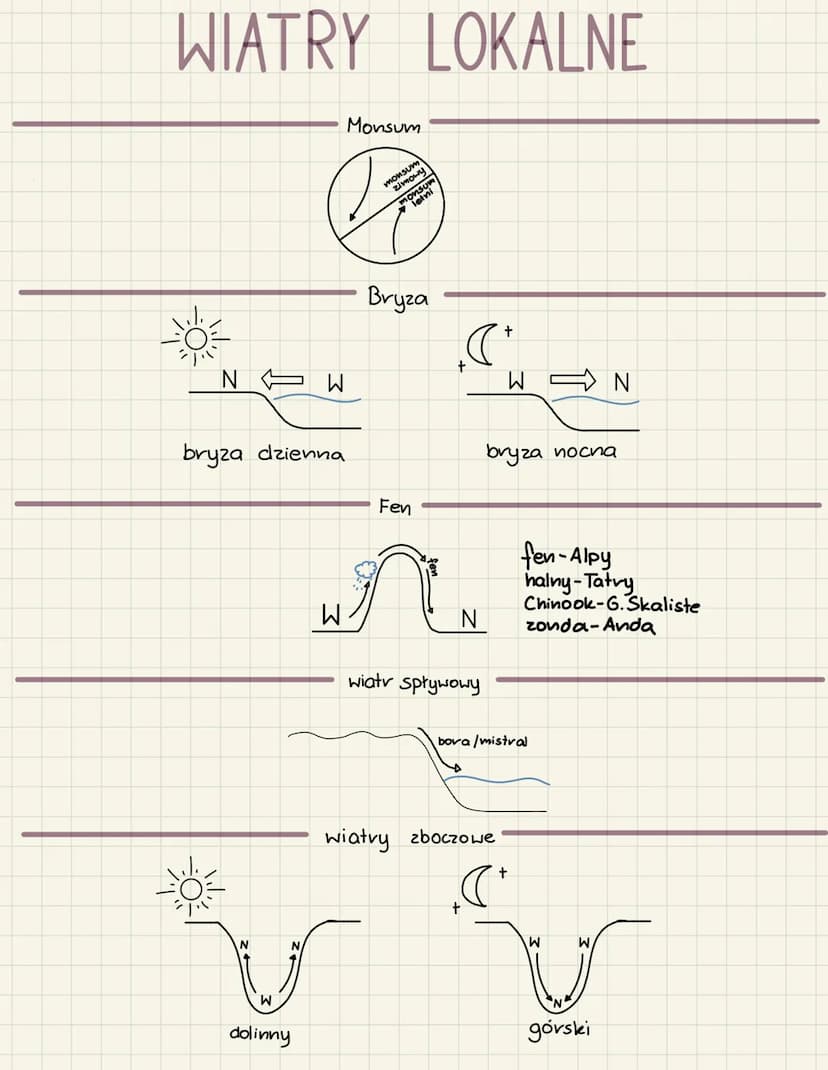 WIATRY LOKALNE
Monsum
monsum
zimowy
monsum
letni
Bryza
N W
W N
bryza dzienna
bryza nocna
Fen
fen
W N
fen-Alpy
halny-Tatry
Chinook-G.Skaliste
zonda-Anda
wiatr spływowy
bora/mistral
wiatry zboczowe
N N
W
dolinny
W W
N
górski